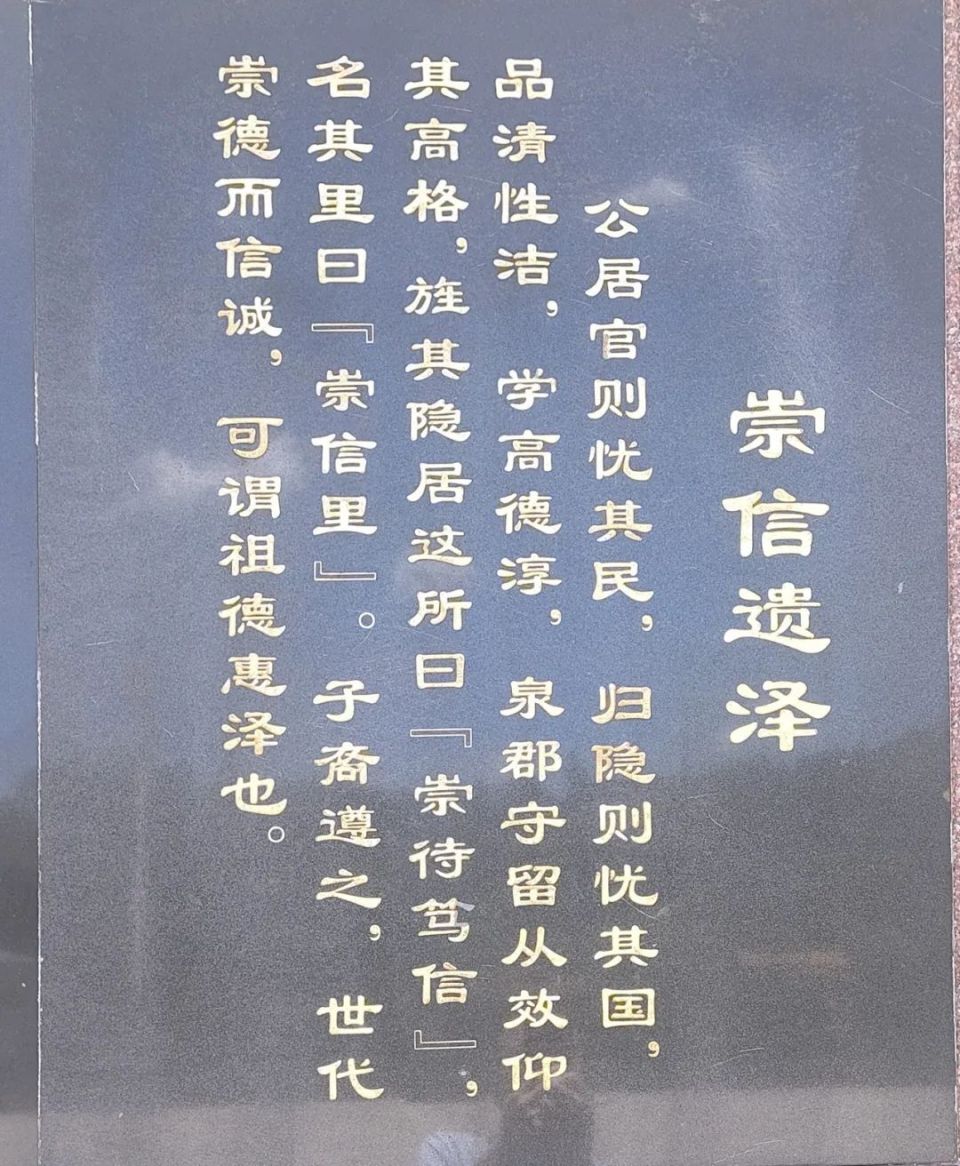 崇信遗泽
公居官则忧其民，归隐则忧其国，
品清性洁，学高德淳，泉郡守留从效仰
其高格，旌其隐居这所曰『崇待笃信』，
名其里曰『崇信里』。子裔遵之，世代
崇德而信诚，可谓祖德惠泽也。